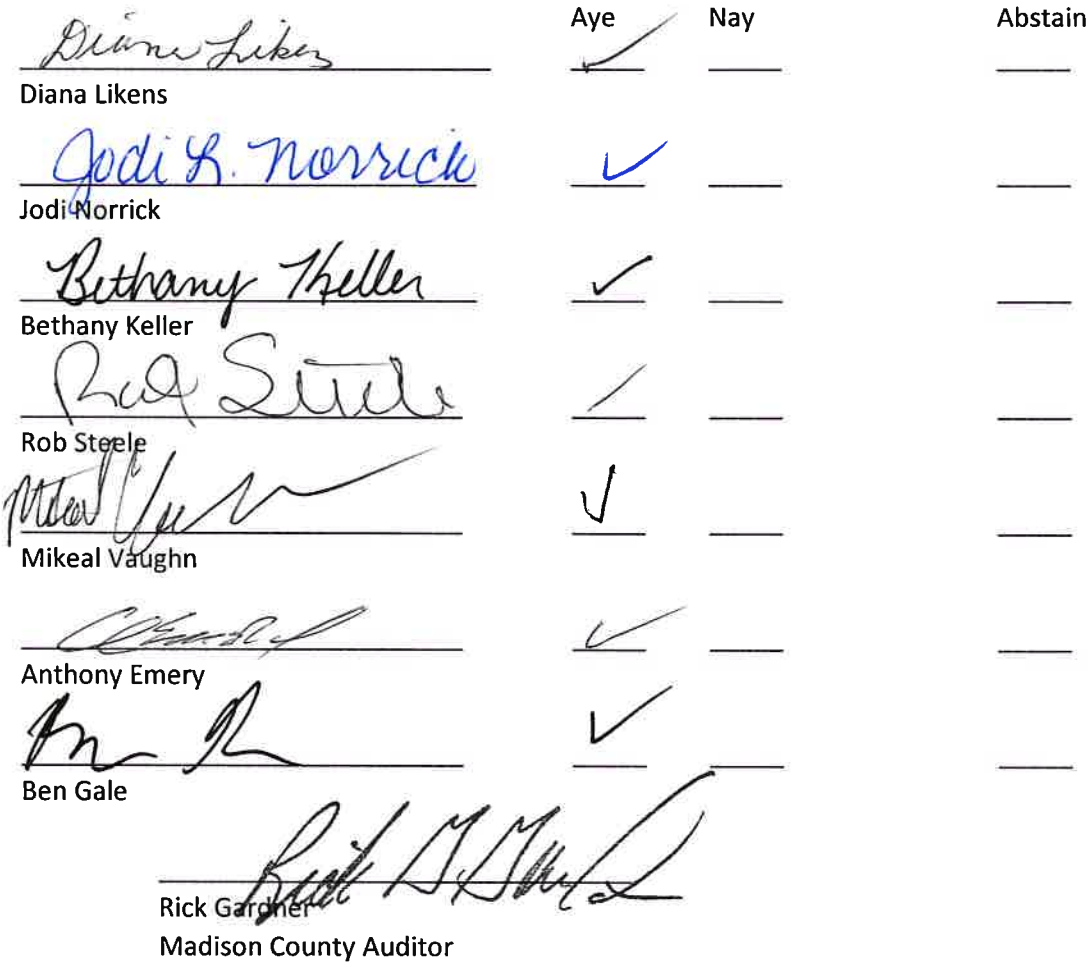 Aye Nay Abstain
Diana Likens
Diana Likens
Jodi L. Norrick
Jodi Norrick
Bethany Keller
Bethany Keller
Rob Steele
Rob Steele
Mikeal Vaughn
Anthony Emery
Ben Gale
Rick G. Gardner
Rick Gardner
Madison County Auditor